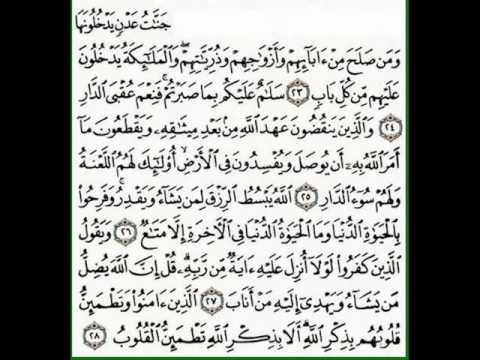 جَنَّٰتُ عَدْنٍ يَدْخُلُونَهَا
وَمَن صَلَحَ مِنْ ءَابَآئِهِمْ وَأَزْوَٰجِهِمْ وَذُرِّيَّٰتِهِمْ ۖ وَٱلْمَلَٰٓئِكَةُ يَدْخُلُونَ
عَلَيْهِم مِّن كُلِّ بَابٍ ٢٣ سَلَٰمٌ عَلَيْكُم بِمَا صَبَرْتُمْ ۚ فَنِعْمَ عُقْبَى ٱلدَّارِ
٢٤ وَٱلَّذِينَ يَنقُضُونَ عَهْدَ ٱللَّهِ مِنۢ بَعْدِ مِيثَٰقِهِۦ وَيَقْطَعُونَ مَآ
أَمَرَ ٱللَّهُ بِهِۦٓ أَن يُوصَلَ وَيُفْسِدُونَ فِى ٱلْأَرْضِ ۙ أُو۟لَٰٓئِكَ لَهُمُ ٱللَّعْنَةُ
وَلَهُمْ سُوٓءُ ٱلدَّارِ ٢٥ ٱللَّهُ يَبْسُطُ ٱلرِّزْقَ لِمَن يَشَآءُ وَيَقْدِرُ ۚ وَفَرِحُوا۟
بِٱلْحَيَوٰةِ ٱلدُّنْيَا وَمَا ٱلْحَيَوٰةُ ٱلدُّنْيَا فِى ٱلْءَاخِرَةِ إِلَّا مَتَٰعٌ ٢٦ وَيَقُولُ
ٱلَّذِينَ كَفَرُوا۟ لَوْلَآ أُنزِلَ عَلَيْهِ ءَايَةٌ مِّن رَّبِّهِۦ ۗ قُلْ إِنَّ ٱللَّهَ يُضِلُّ
مَن يَشَآءُ وَيَهْدِىٓ إِلَيْهِ مَنْ أَنَابَ ٢٧ ٱلَّذِينَ ءَامَنُوا۟ وَتَطْمَئِنُّ
قُلُوبُهُم بِذِكْرِ ٱللَّهِ ۗ أَلَا بِذِكْرِ ٱللَّهِ تَطْمَئِنُّ ٱلْقُلُوبُ ٢٨